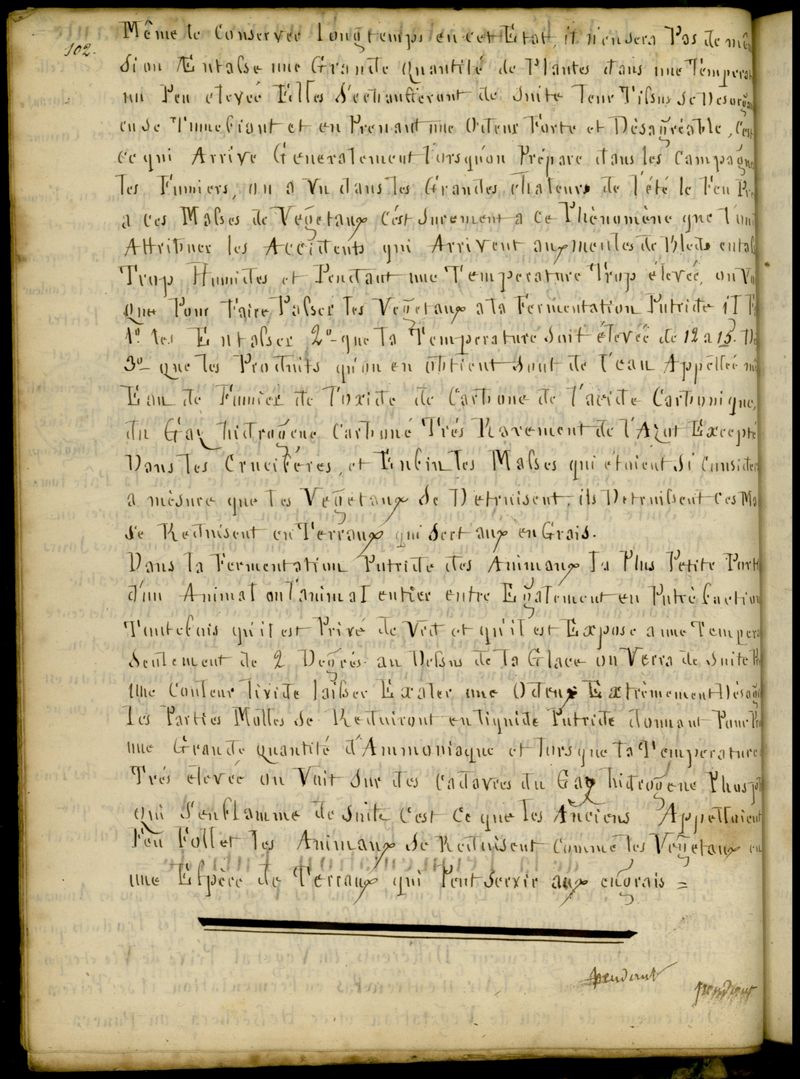 102.
Même le Conserver Longtemps en cet Etat, il n'en sera Pas de mê
Si on Entasse une Grande Quantité de Plantes dans une Tempera
un Peu elevée Elles S'echaufferont de Suite leur Tissus Se Desorga
en Se Tumefiant et en Prenant une Odeur Forte et Désagréable, C'es
Ce qui Arrive Generalement lorsqu'on Prépare dans les Campagne
les Fumiers, on a Vu dans les Grandes chaleurs de l'été le Feu Pre
a Ces Masses de Vegetaux C'est Surement a Ce Phènomène que l'on
Attribuer les Accidents qui Arrivent aux meules de Bleds entas
Trop Humides et Pendant une Temperature Trop élevée, on Vo
Que Pour Faire Passer les Vegetaux a la Fermentation Putride il F
1º les Entasser 2º que la Temperature Soit élevée de 12 a 15. D
3º que les Produits qu'on en obtient Sont de l'eau Appellée
Eau de Fumier de l'oxide de Carbone de l'acide Carbonique,
du Gaz hidrogene Carboné Trés Rarement de l'Azot Excepté
Dans les Crucifères, et Enfin les Masses qui etoient Si Consider
a mèsure que les Vegetaux Se Detruisent, ils Detruisent Ces Ma
Se Reduisent en Terraux qui Sert aux en Grais.
Dans la Fermentation Putride des Animaux la Plus Petite Part
d'un Animal ou l'animal entier entre Egalement en Putréfaction
Toutefois qu'il est Privé de Vie et qu'il est Expose a une Tempera
Seulement de 2 Degrés au Dessus de la Glace on Verra de Suite
Une Couleur livide laisser Exaler une Odeux Extrèmement Désagré
les Parties Molles Se Reduiront en liquide Putride donnant Pour Pr
une Grande quantité d'Ammoniaque et lorsque la Temperature
Trés elevée on Voit Sur des Cadavres du Gaz hidrogene Phosp
qui S'enflamme de Suite C'est Ce que les Anciens Appelloient
Feu Follet les Animaux Se Reduisent Comme les Vegetaux en
une Espèce de Terraux qui Peut Servir aux engrais =
Pendant
Pendant